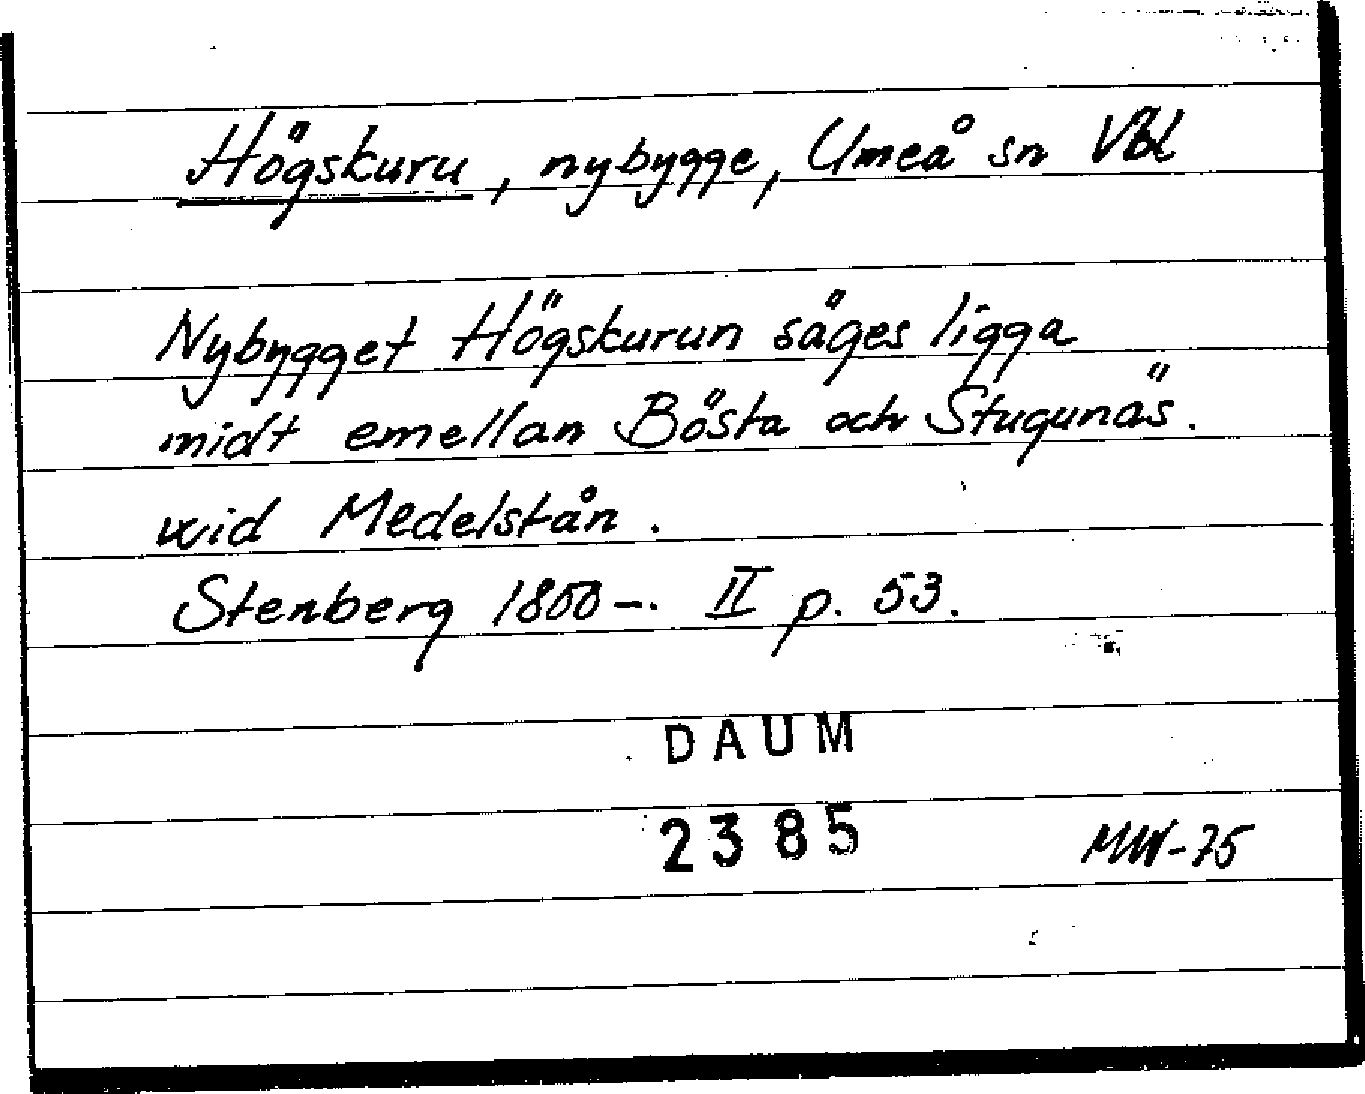 Högskuru, nybygge, Umeå sn Vbl
Nybygget Högskurun säges ligga
midt emellan Bösta och Stugunäs.
wid Medelstån.
Stenberg 1800-. II p. 53.
DAUM
2385
MW-75